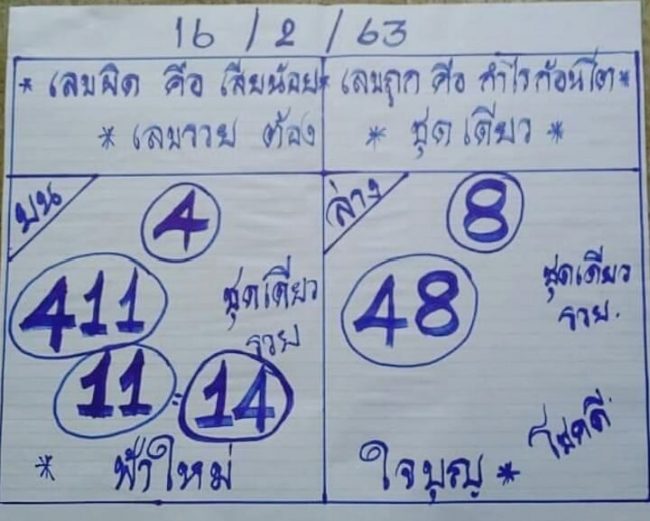 16 / 2 / 63
* เล่นผิด คือ เสียน้อย* เล่นถูก คือ กำไรก้อนโต*
* เล่นรวย ต้อง * ชุดเดียว *
บน
4
411
ชุดเดียว
รวย
11 = 14
* ฟ้าใหม่
ล่าง
8
48
ชุดเดียว
รวย.
โชคดี
ใจบุญ *